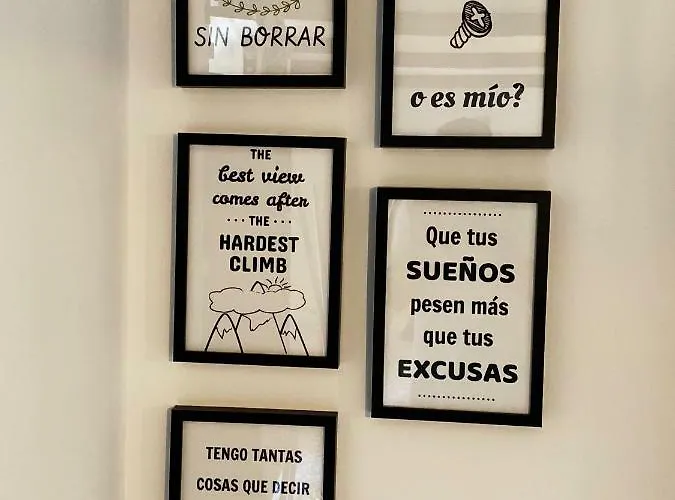 SIN BORRAR
o es mío?
THE
best view
comes after
THE
HARDEST
CLIMB
Que tus
SUEÑOS
pesen más
que tus
EXCUSAS
TENGO TANTAS
COSAS QUE DECIR